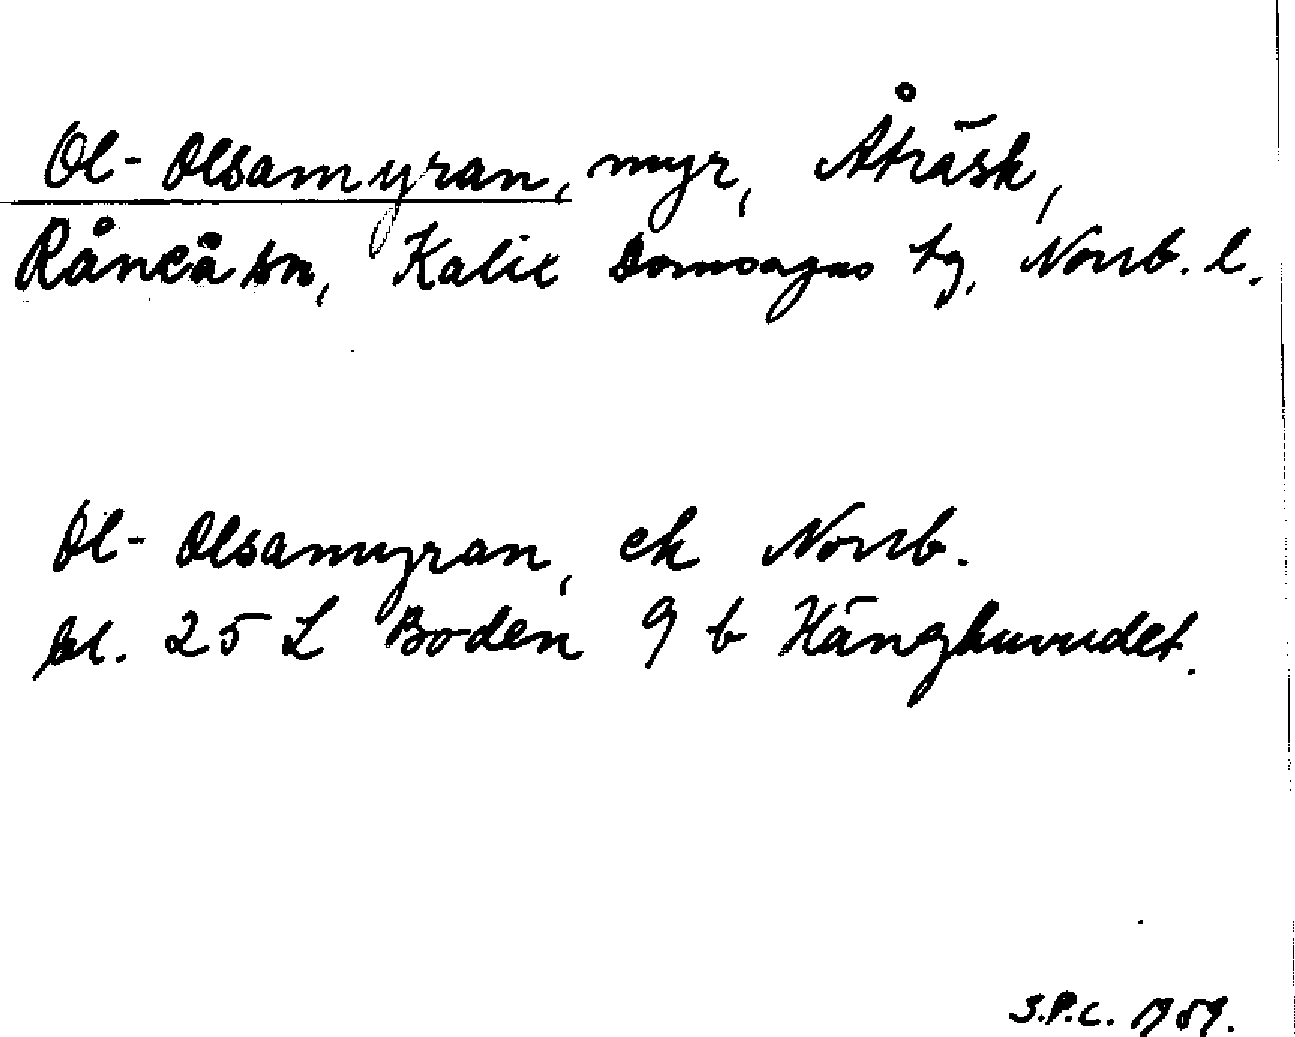 Ol-Olsamyran, myr, Åträsk,
Råneå sn, Kalix Domsagas tg, Norrb. l.
Ol-Olsamyran, ek Norrb.
bl. 25 L Boden 9 b Hänghuvudet.
S.P.C. 1959.